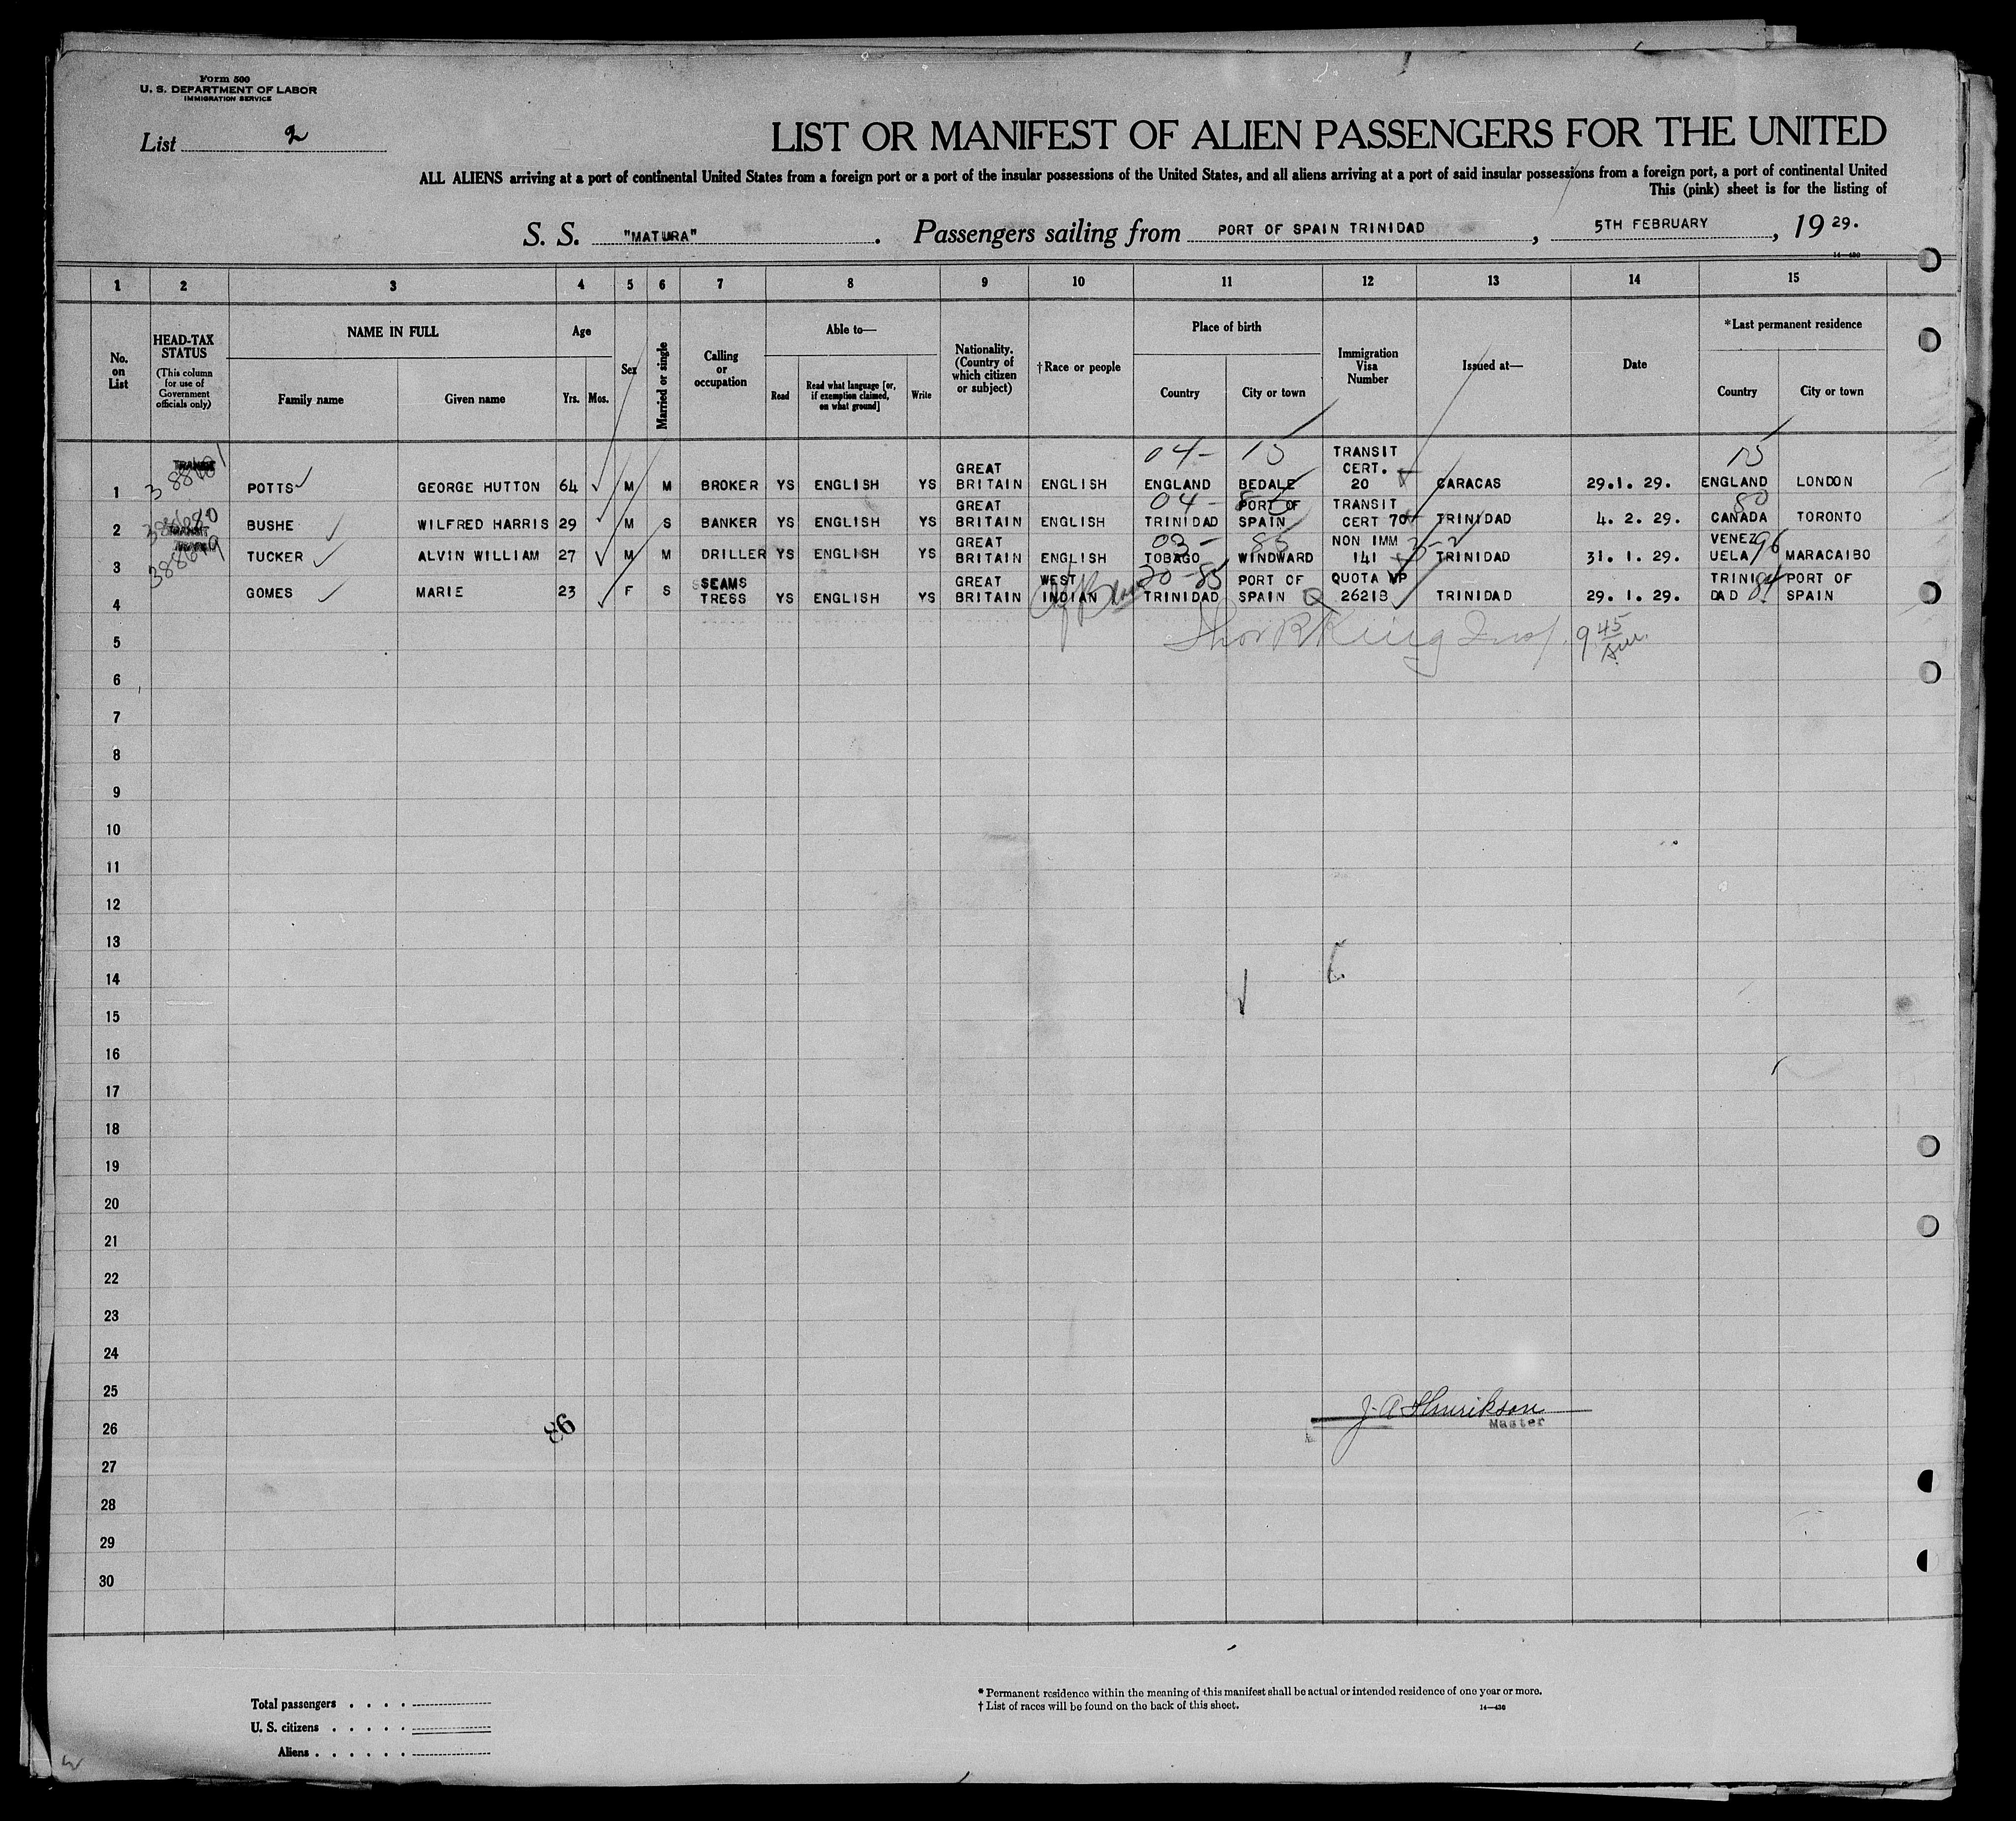 Form 500
U. S. DEPARTMENT OF LABOR
IMMIGRATION SERVICE
List 2
LIST OR MANIFEST OF ALIEN PASSENGERS FOR THE UNITED
ALL ALIENS arriving at a port of continental United States from a foreign port or a port of the insular possessions of the United States, and all aliens arriving at a port of said insular possessions from a foreign port, a port of continental United
This (pink) sheet is for the listing of
S. S. "MATURA". Passengers sailing from PORT OF SPAIN TRINIDAD, 5TH FEBRUARY, 19 29.
14—430
1 2 3 4 5 6 7 8 9 10 11 12 13 14 15
No. on List
HEAD-TAX STATUS
(This column for use of Government officials only)
NAME IN FULL
Family name Given name
Age
Yrs. Mos.
Sex
Married or single
Calling or occupation
Able to—
Read
Read what language [or, if exemption claimed, on what ground]
Write
Nationality. (Country of which citizen or subject)
†Race or people
Place of birth
Country City or town
Immigration Visa Number
Issued at—
Date
*Last permanent residence
Country City or town
04- 15 TRANSIT CERT. 15
1 TRANSIT POTTS GEORGE HUTTON 64 M M BROKER YS ENGLISH YS GREAT BRITAIN ENGLISH ENGLAND BEDALE 20 CARACAS 29.1. 29. ENGLAND LONDON
04- 85 80
2 TRANSIT BUSHE WILFRED HARRIS 29 M S BANKER YS ENGLISH YS GREAT BRITAIN ENGLISH TRINIDAD PORT OF SPAIN TRANSIT CERT 70 TRINIDAD 4. 2. 29. CANADA TORONTO
03- 85 3-2 96
3 TRANSIT 388679 TUCKER ALVIN WILLIAM 27 M M DRILLER YS ENGLISH YS GREAT BRITAIN ENGLISH TOBAGO WINDWARD NON IMM 141 TRINIDAD 31. 1. 29. VENEZ UELA MARACAIBO
20-85 84
4 GOMES MARIE 23 F S SEAMS TRESS YS ENGLISH YS GREAT BRITAIN WEST INDIAN TRINIDAD PORT OF SPAIN Q QUOTA VP 26213 TRINIDAD 29. 1. 29. TRINI DAD PORT OF SPAIN
5 King Insp. 9 45 am.
6
7
8
9
10
11
12
13
14
15
16
17
18
19
20
21
22
23
24
25
J. A. Henrikson
Master
26 86
27
28
29
30
Total passengers . . . .
U. S. citizens . . . . .
Aliens . . . . . .
* Permanent residence within the meaning of this manifest shall be actual or intended residence of one year or more.
† List of races will be found on the back of this sheet.
14—430